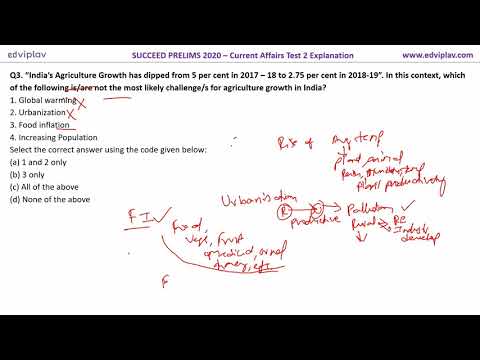 edviplav
SUCCEED PRELIMS 2020 – Current Affairs Test 2 Explanation
www.edviplav.com
Q3. “India’s Agriculture Growth has dipped from 5 per cent in 2017 – 18 to 2.75 per cent in 2018-19”. In this context, which
of the following is/are not the most likely challenge/s for agriculture growth in India?
1. Global warming
2. Urbanization
3. Food inflation
4. Increasing Population
Select the correct answer using the code given below:
(a) 1 and 2 only
(b) 3 only
(c) All of the above
(d) None of the above
Rise of Avg temp
plant, animal
plant productivity
Urbanisation
R
Pollution
Productive
Rural
RE
Indust
develop
F I
Food,
vegs, Fruit
F